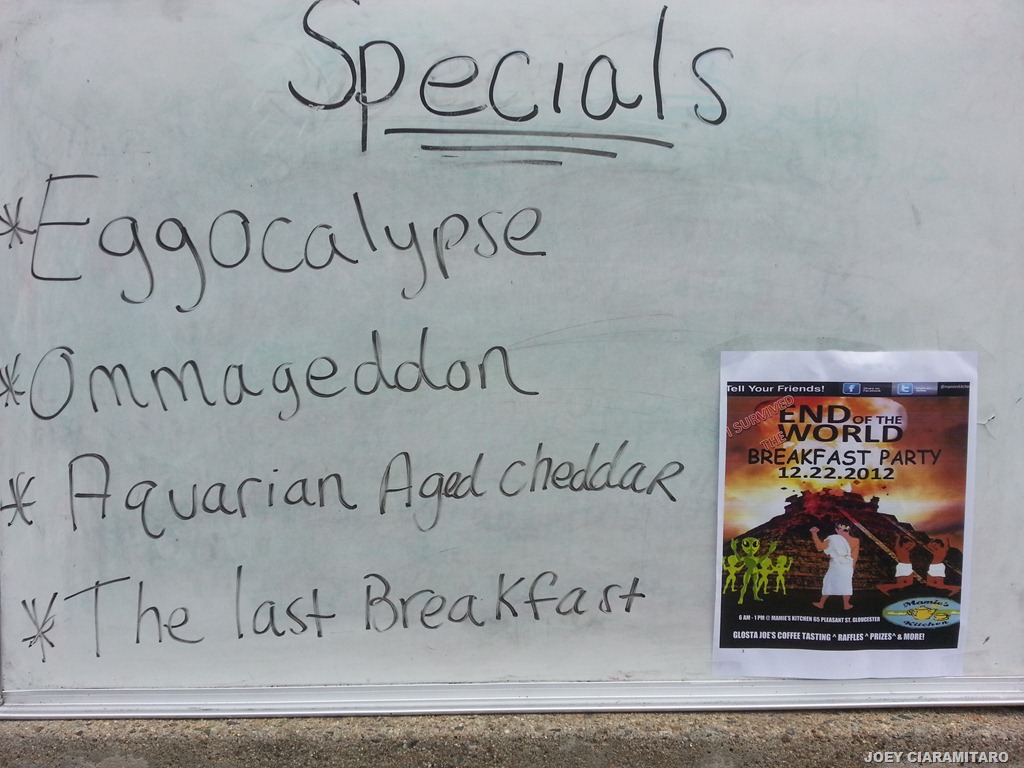 Specials
*Eggocalypse
*Ommageddon
* Aquarian Aged cheddar
* The last Breakfast
Tell Your Friends!
I SURVIVED
THE
END OF THE
WORLD
BREAKFAST PARTY
12.22.2012
Mamie's
Kitchen
6 AM - 1 PM @ MAMIE'S KITCHEN 65 PLEASANT ST. GLOUCESTER
GLOSTA JOE'S COFFEE TASTING ^ RAFFLES ^ PRIZES^ & MORE!
JOEY CIARAMITARO